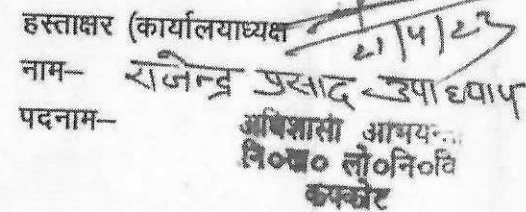 हस्ताक्षर (कार्यालयाध्यक्ष
21/4/23
नाम– राजेन्द्र प्रसाद उपाध्याय
पदनाम–
अधिशासी अभियन...
नि०ख० लो०नि०वि
कपकोट